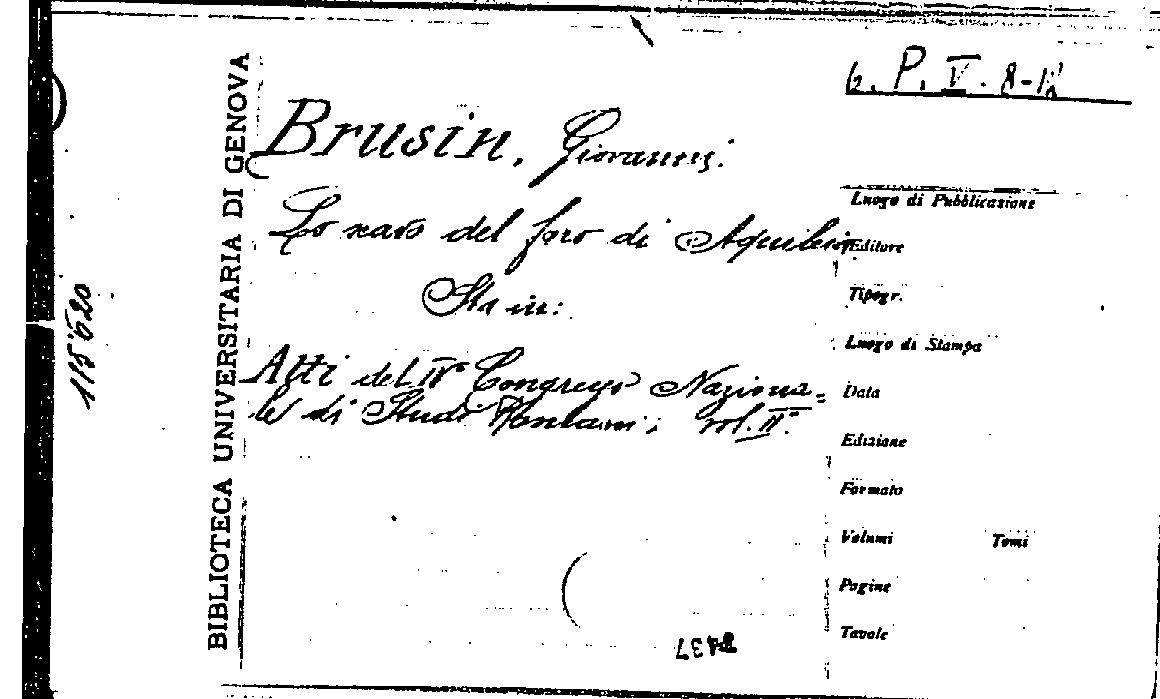 G. P. V. 8-12
Brusin, Giovanni.
Lo scavo del foro di Aquileia
Sta in:
Atti del IV° Congresso Naziona=
le di Studi Romani; vol. II°.
BIBLIOTECA UNIVERSITARIA DI GENOVA
115620
Luogo di Pubblicazione
Editore
Tipogr.
Luogo di Stampa
Data
Edizione
Formato
Volumi Tomi
Pagine
Tavole